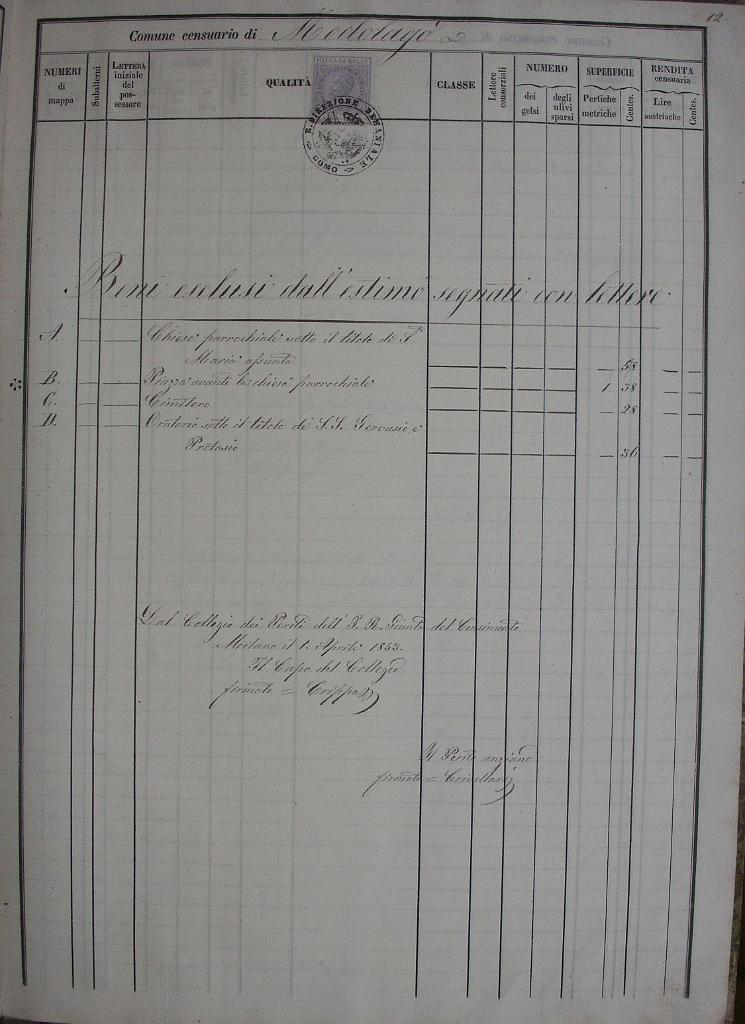 12
Comune censuario di Medolago
NUMERI di mappa
Subalterni
LETTERA iniziale del pos- sessore
QUALITÀ
CLASSE
Lettere consorziali
NUMERO
dei gelsi
degli ulivi sparsi
SUPERFICIE
Pertiche metriche
Centes.
RENDITA censuaria
Lire austriache
Centes.
MARCA DA BOLLO
R. DIREZIONE DEMANIALE
COMO
Beni esclusi dall'estimo segnati con lettere
A. — — Chiesa parrochiale sotto il titolo di S.
Maria assunta — — — — — — 58 — —
B. — — Piazza avanti la chiesa parrochiale — — — — — 1 38 — —
C. — — Cimitero — — — — — — 28 — —
D. — — Oratorio sotto il titolo di S.S. Gervasio e
Protasio — — — — — — 36 — —
Dal Collegio dei Periti dell' I. R. Giunta del Censimento
Milano il 1. Aprile 1853.
Il Capo del Collegio
firmato = Crippa
Il Perito anziano
firmato = Crivellari